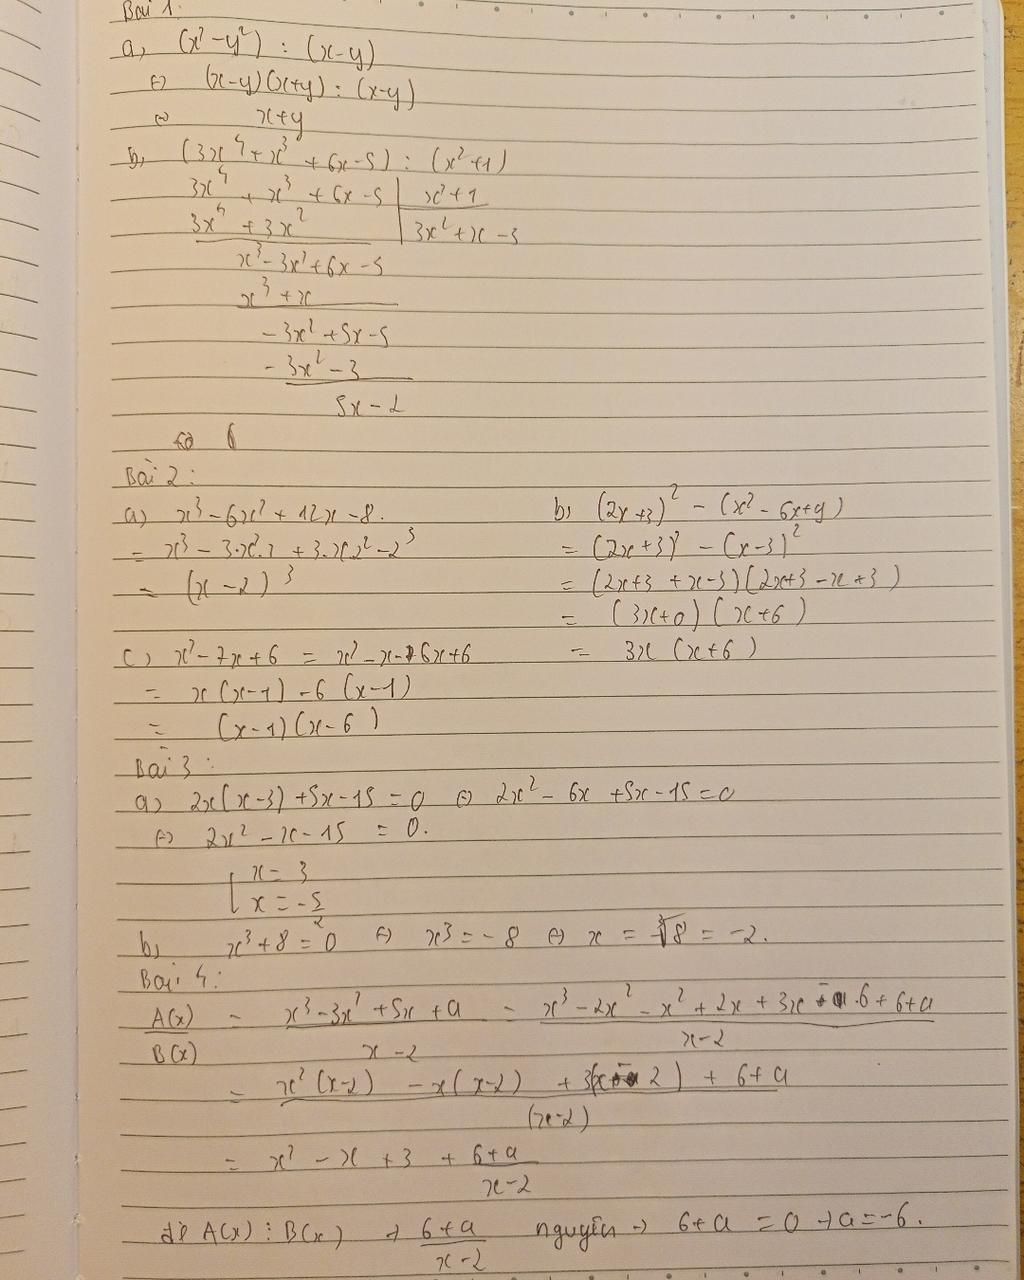 Bài 1:
a, (x² - y²) : (x-y)
⇔ (x-y)(x+y) : (x-y)
⇔ x+y
b, (3x⁴ + x³ + 6x - 5) : (x² + 1)
3x⁴ + x³ + 6x - 5 | x² + 1
3x⁴ + 3x² | 3x² + x - 3
x³ - 3x² + 6x - 5
x³ + x
- 3x² + 5x - 5
- 3x² - 3
5x - 2
Bài 2:
a) x³ - 6x² + 12x - 8.
= x³ - 3.x².2 + 3.x.2² - 2³
= (x - 2)³
b, (2x+3)² - (x² - 6x + 9)
= (2x+3)² - (x-3)²
= (2x+3 + x-3)(2x+3 - x + 3)
= (3x+0)(x+6)
= 3x (x+6)
c, x² - 7x + 6 = x² - x - 6x + 6
= x(x-1) - 6(x-1)
= (x-1)(x-6)
Bài 3:
a, 2x(x-3) + 5x - 15 = 0 ⇔ 2x² - 6x + 5x - 15 = 0
⇔ 2x² - x - 15 = 0.
[ x = 3
x = -5/2
b, x³ + 8 = 0 ⇔ x³ = -8 ⇔ x = ∛-8 = -2.
Bài 4:
A(x)/B(x) = (x³ - 3x² + 5x + a)/(x - 2) = (x³ - 2x² - x² + 2x + 3x - 6 + 6 + a)/(x-2)
= (x²(x-2) - x(x-2) + 3(x - 2) + 6 + a)/(x-2)
= x² - x + 3 + (6+a)/(x-2)
để A(x) ⋮ B(x) → (6+a)/(x-2) nguyên → 6+a = 0 → a = -6.